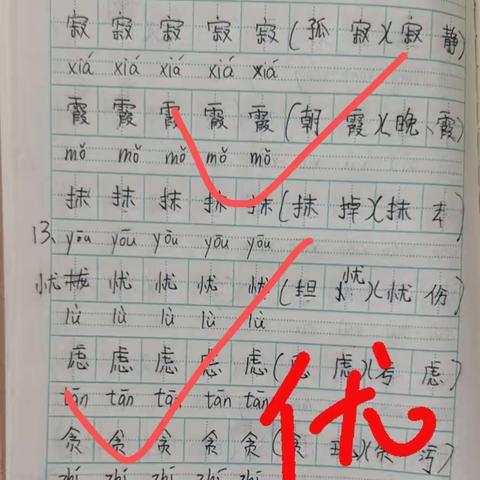 寂 寂 寂 寂 寂(孤 寂)(寂 静)
xiá xiá xiá xiá xiá
霞 霞 霞 霞 霞(朝 霞)(晚 霞)
mǒ mǒ mǒ mǒ mǒ
抹 抹 抹 抹 抹(抹 掉)(抹 去)
13、yōu yōu yōu yōu yōu
忧 忧 忧 忧 忧(担 忧)(忧 伤)
lǜ lǜ lǜ lǜ lǜ
虑 虑 虑 虑 虑( 虑)(考 虑)
tān tān tān tān tān
贪 贪 贪 贪 贪(贪 )(贪 污)
优